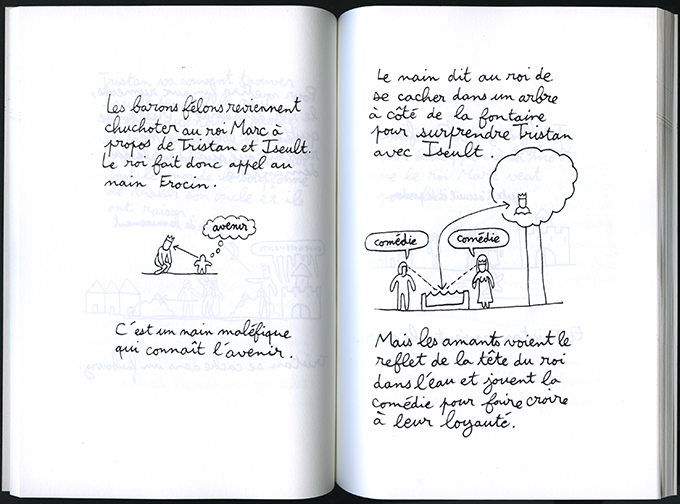 Les barons félons reviennent
chuchoter au roi Marc à
propos de Tristan et Iseult.
Le roi fait donc appel au
nain Frocin.
avenir
C'est un nain maléfique
qui connaît l'avenir.
Le nain dit au roi de
se cacher dans un arbre
à côté de la fontaine
pour surprendre Tristan
avec Iseult.
comédie
comédie
Mais les amants voient le
reflet de la tête du roi
dans l'eau et jouent la
comédie pour faire croire
à leur loyauté.